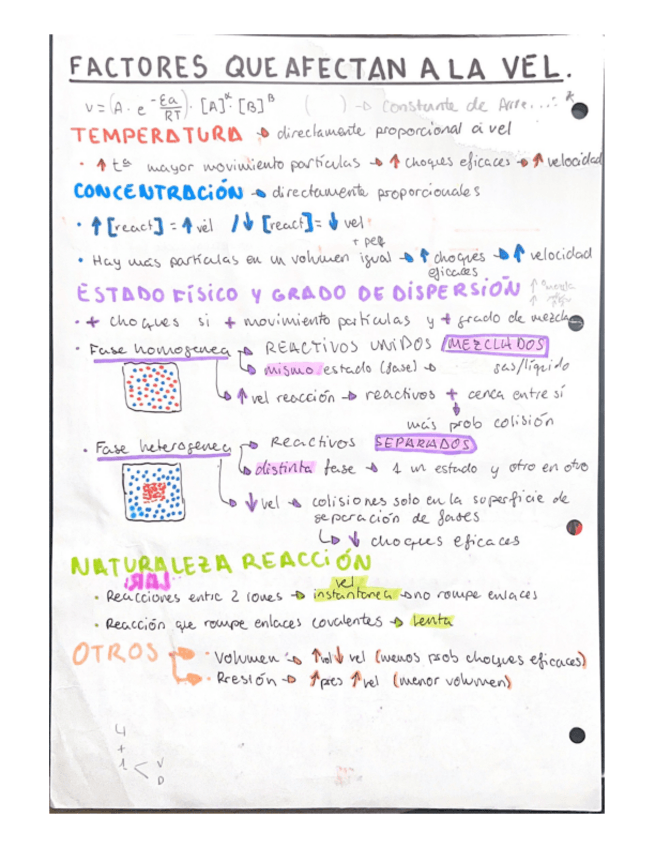 FACTORES QUE AFECTAN A LA VEL.
v = (A · e -Ea/RT) · [A]α · [B]B ( ) → Constante de Arre... k
TEMPERATURA → directamente proporcional a vel
· ↑ tª mayor movimiento partículas → ↑ choques eficaces → ↑ velocidad
CONCENTRACIÓN → directamente proporcionales
· ↑ [react] = ↑ vel / ↓ [react] = ↓ vel
+ peq
· Hay más partículas en un volumen igual → ↑ choques → ↑ velocidad
eficaces
ESTADO FÍSICO Y GRADO DE DISPERSIÓN
· + choques si + movimiento partículas y + grado de mezcla
· Fase homogenea → REACTIVOS UNIDOS / MEZCLADOS
→ mismo estado (fase) → gas/líquido
→ ↑ vel reacción → reactivos + cerca entre sí
más prob colisión
· Fase heterogenea → Reactivos SEPARADOS
→ distinta fase → 1 un estado y otro en otro
→ ↓ vel → colisiones solo en la superficie de
separación de fases
↳ ↓ choques eficaces
NATURALEZA REACCIÓN
vel
· Reacciones entre 2 iones → instantanea → no rompe enlaces
· Reacción que rompe enlaces covalentes → lenta
OTROS → · Volumen → ↑ vol ↓ vel (menos prob choques eficaces)
→ · Presión → ↑ pres ↑ vel (menor volumen)
4
+
1 < V
D